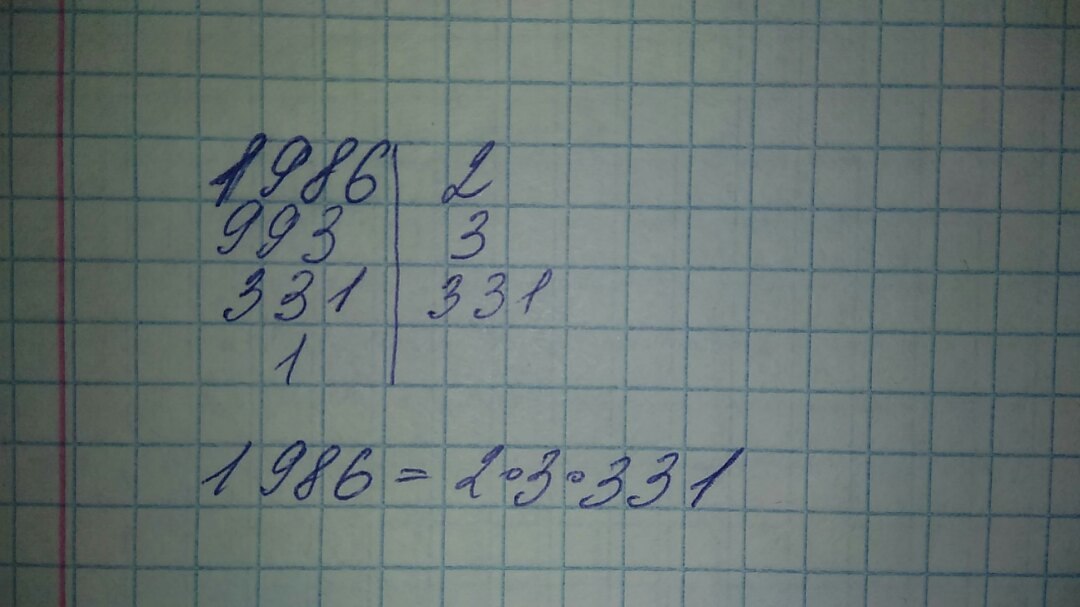 1986 | 2
993 | 3
331 | 331
1 |
1986 = 2·3·331